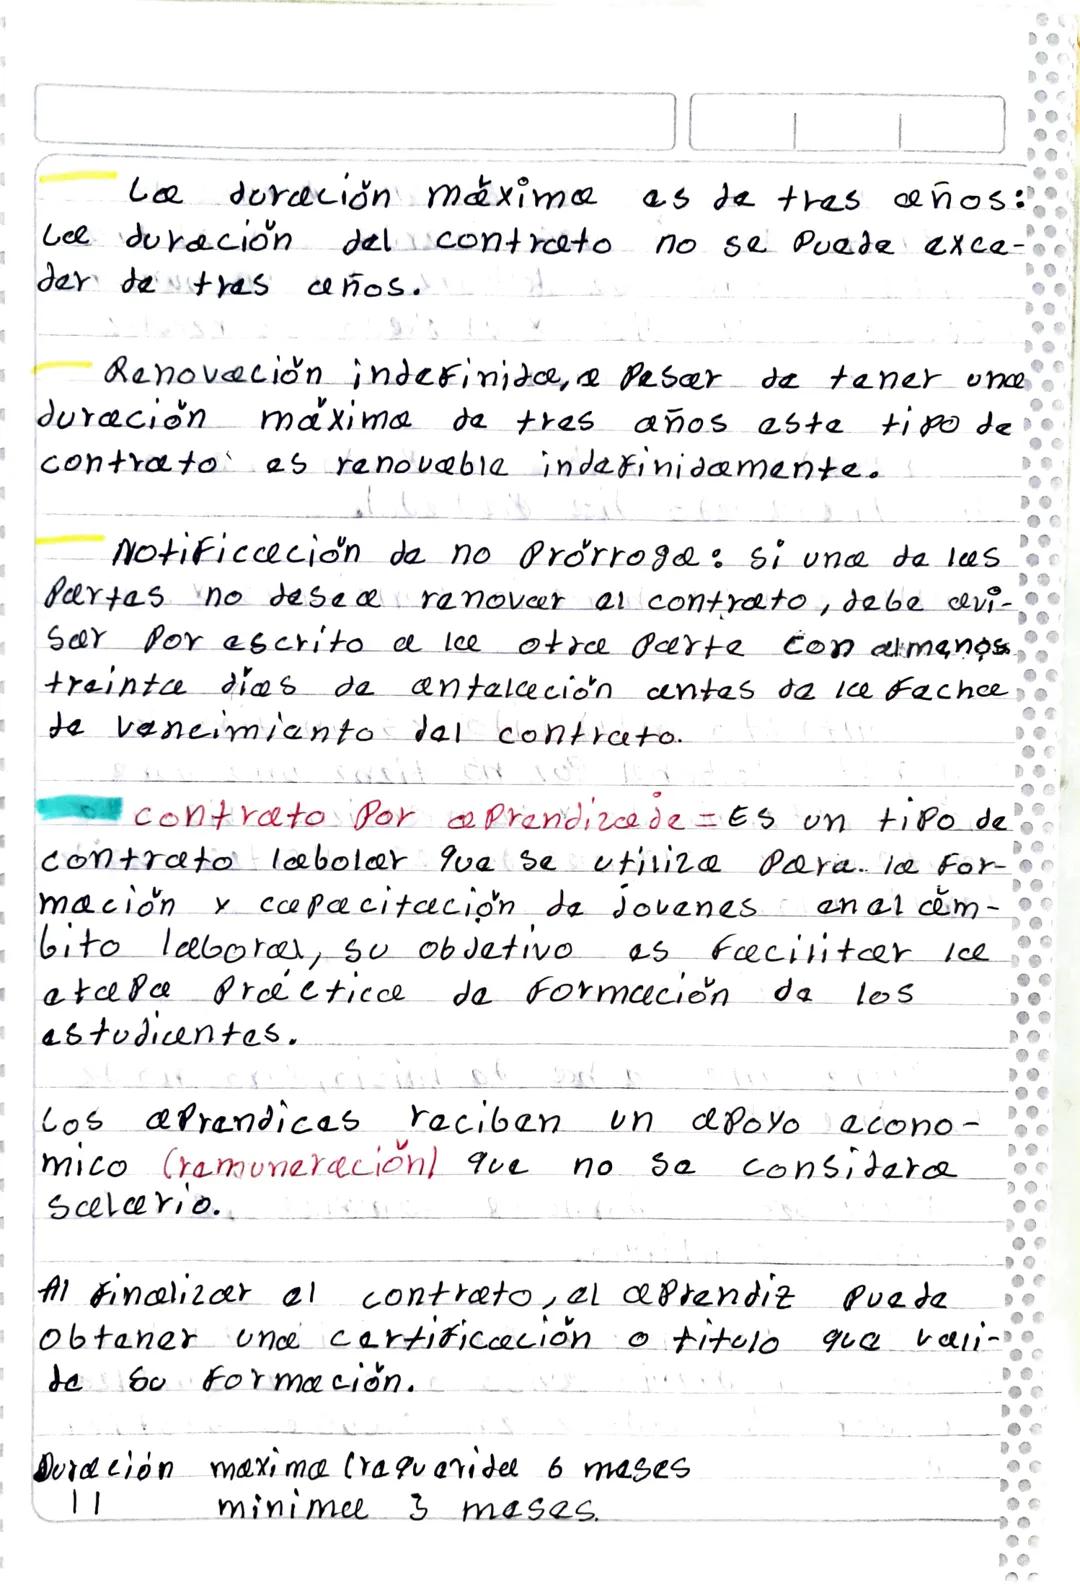 La duración máxima es de tres años:
La duración del contrato no se puede exce-
der de tres años.
Renovación indefinida, a pesar de tener una
duración máxima de tres años este tipo de
contrato es renovable indefinidamente.
Notificación de no Prórroga: si una de las
Partes no desea renovar el contrato, debe avi-
sar Por escrito a la otra Parte con almenos
treinta días de antelación antes de la fecha
de vencimiento del contrato.
contrato Por aprendizade = Es un tipo de
contrato labolar que se utiliza Para. la for-
mación y capacitación de jovenes en el ám-
bito laboral, su objetivo es facilitar la
etapa Práctica de formación de los
estudiantes.
Los aprendices reciben un apoyo econo-
mico (remuneración) que no se considera
salario.
Al finalizar el contrato, el aprendiz puede
obtener una certificación o titulo que vali-
de su formación.
Duración maxima (requerida 6 meses
11 minima 3 meses.